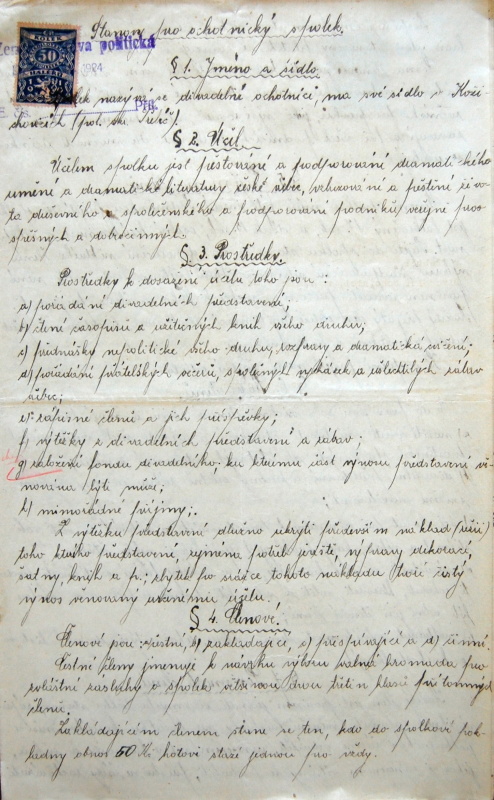 Stanovy pro ochotnický spolek.
politická
1924
50
§ 1. Jméno a sídlo.
nazývá se divadelní ochotníci, má své sídlo v Koži-
chovicích (pol. okr. Třebíč).
§ 2. Účel.
Účelem spolku jest pěstování a podporování dramatického
umění a dramatické literatury české vůbec, vzbuzování a pěstění živo-
ta duševního a společenského a podporování podniků veřejně pros-
pěšných a dobročinných.
§ 3. Prostředky.
Prostředky k dosažení účelu toho jsou:
a) pořádání divadelních představení;
b) čtení časopisů a užitečných knih všeho druhu;
c) přednášky nepolitické všeho druhu, rozpravy a dramatická cvičení;
d) pořádání přátelských večerů, společných vycházek a ušlechtilých zábav
vůbec;
e) zápisné členů a jich příspěvky;
f) výtěžky z divadelních představení a zábav;
g) založení fondu divadelního, ku kterému část výnosu představení vě-
nována býti může;
h) mimořádné příjmy;
Z výtěžku představení dlužno ukrýti především náklad (režii)
toho kterého představení, zejména potřeb jeviště, výpravy dekorací,
šatny, knih a p.; zbytek po srážce tohoto nákladu tvoří čistý
výnos věnovaný účelu.
§ 4. Členové.
Členové jsou: čestní, b) zakládající, c) přispívající a d) činní.
Čestné členy jmenuje k návrhu výboru valná hromada pro
zvláštní zásluhy o spolek většinou dvou třetin hlasů přítomných
členů.
Zakládajícím členem stane se ten, kdo do spolkové pok-
ladny obnos 50 Kč hotově složí jednou pro vždy.